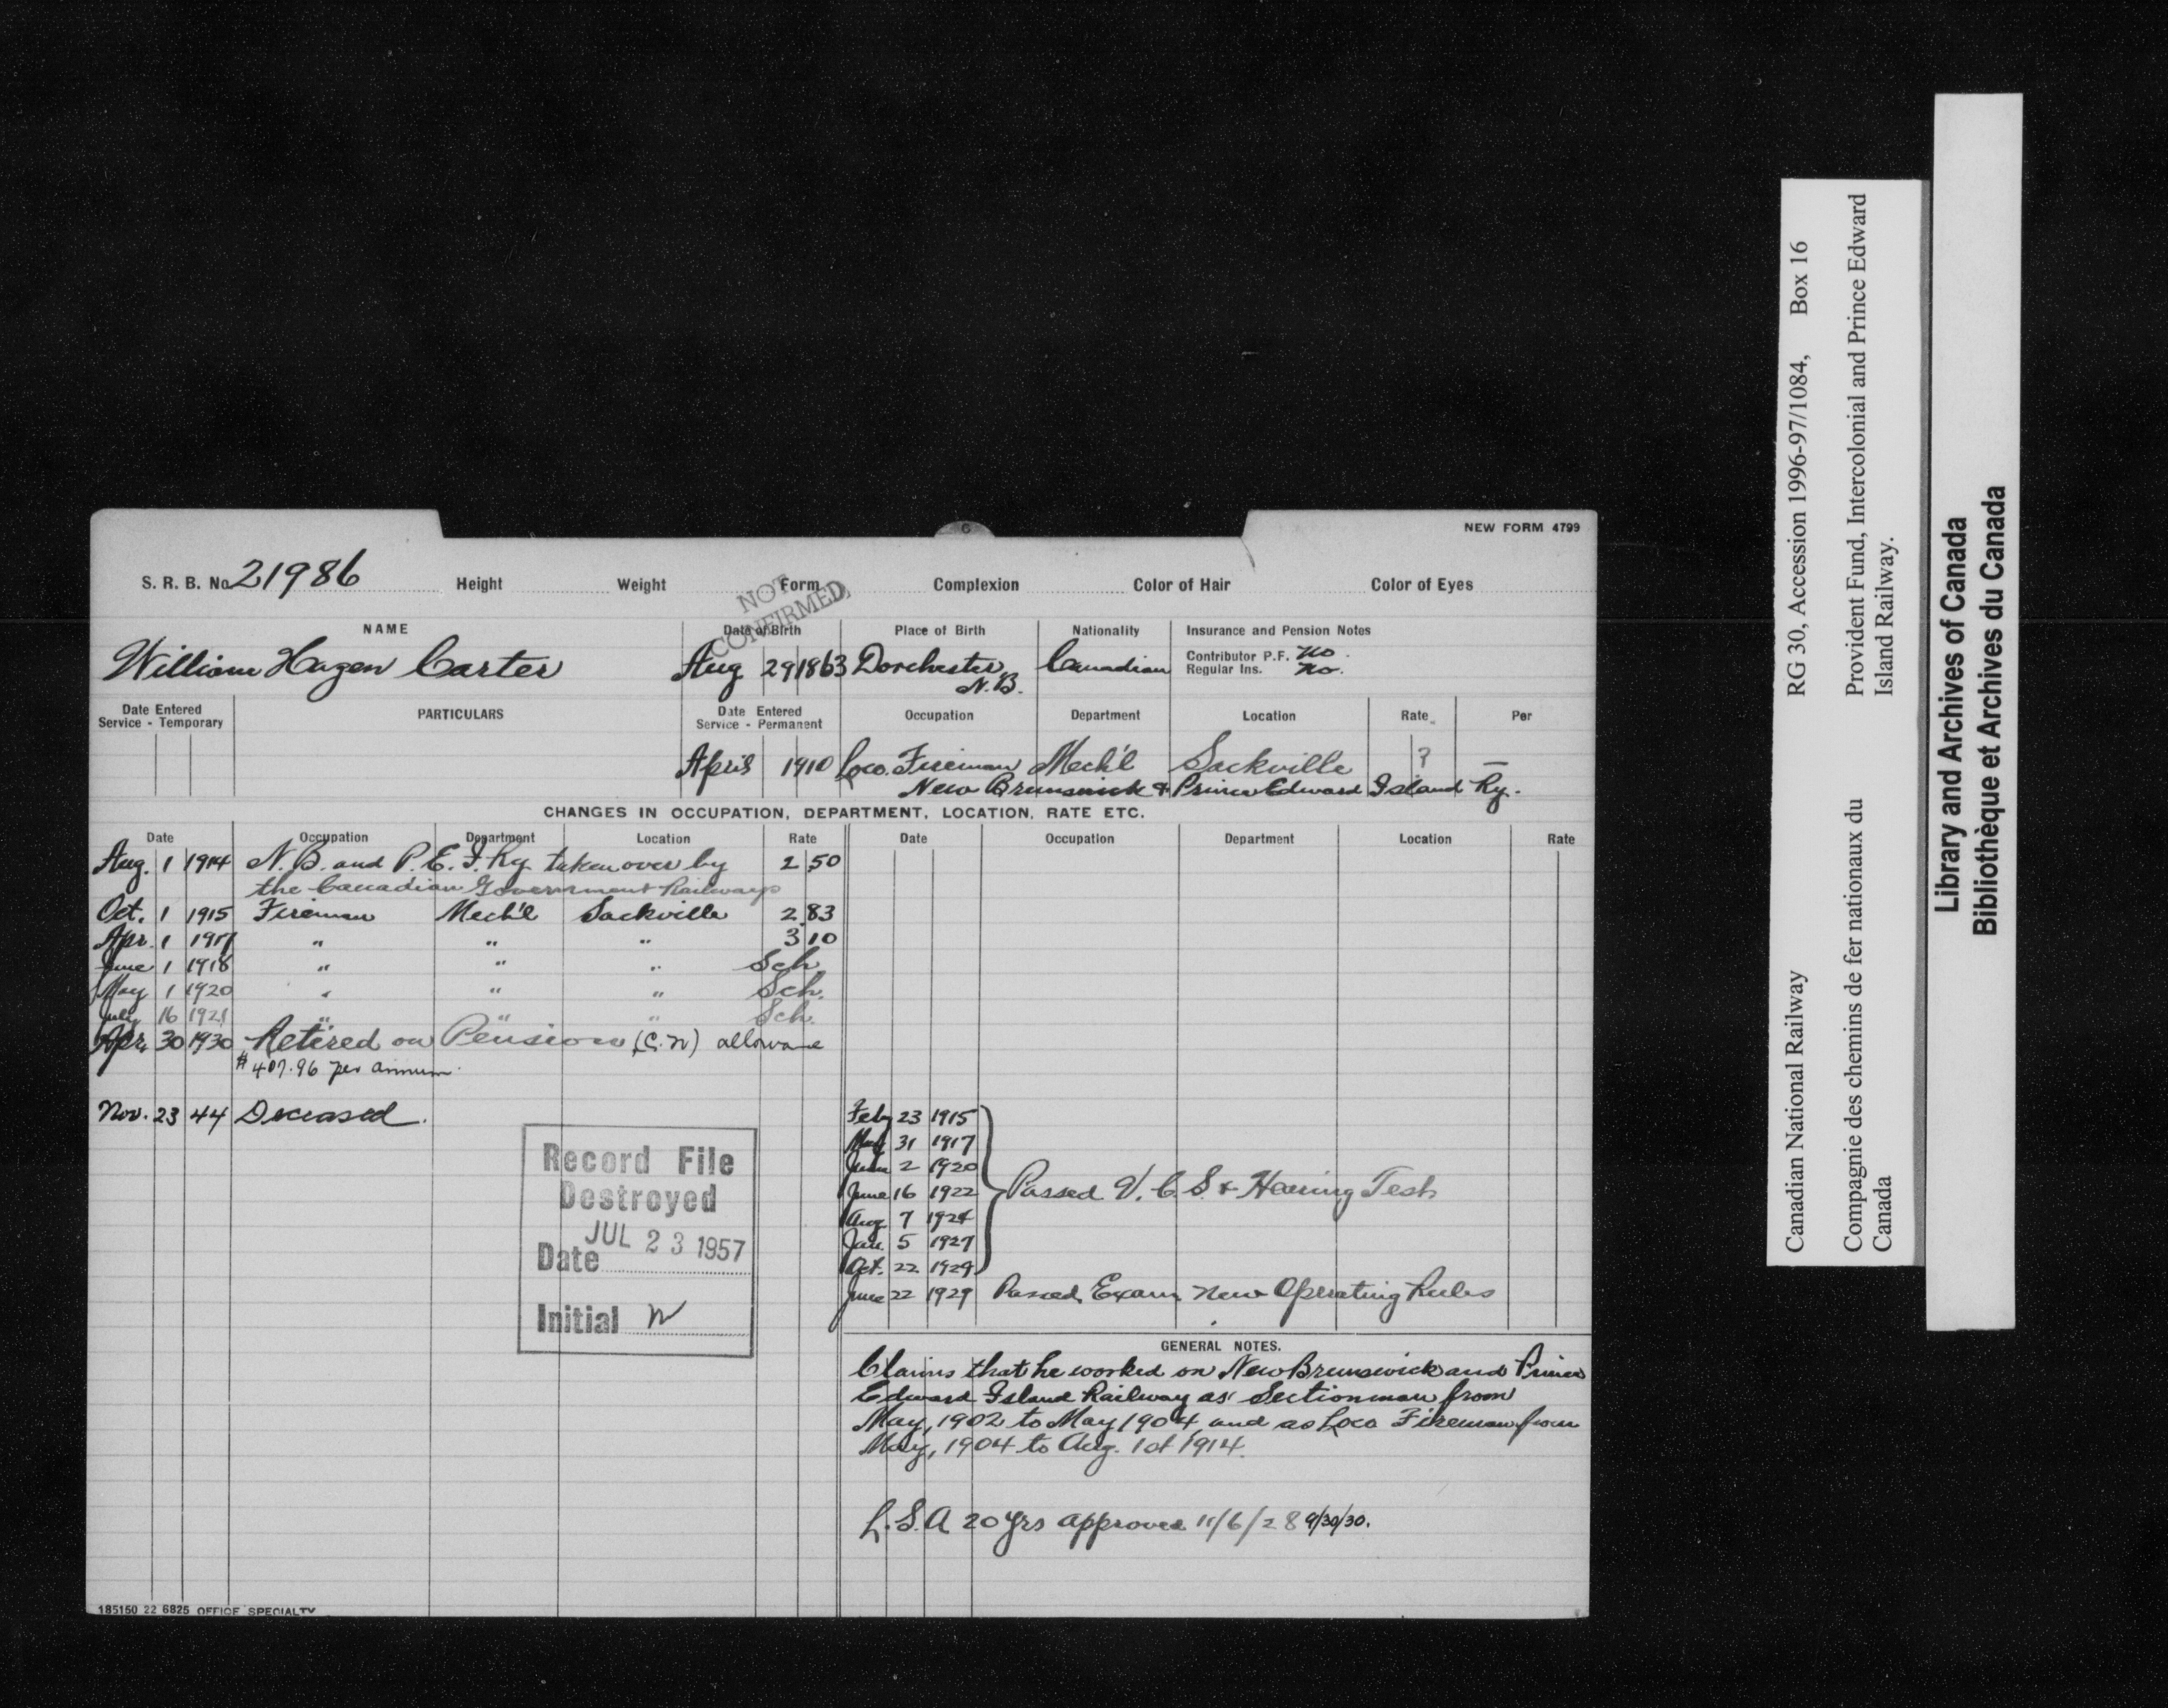 NEW FORM 4799
6
S. R. B. No 21986 Height Weight Form Complexion Color of Hair Color of Eyes
NOT CONFIRMED
NAME Date of Birth Place of Birth Nationality Insurance and Pension Notes
William Hazen Carter Aug 29 1863 Dorchester N.B. Canadian
Contributor P.F. no
Regular Ins. no.
Date Entered Service - Temporary PARTICULARS Date Entered Service - Permanent Occupation Department Location Rate Per
April 1910 Loco. Fireman Mech'l Sackville ? —
New Brunswick & Prince Edward Island Ry.
CHANGES IN OCCUPATION, DEPARTMENT, LOCATION, RATE ETC.
Date Occupation Department Location Rate Date Occupation Department Location Rate
Aug. 1 1914 N.B. and P.E.I. Ry taken over by 2 50
the Canadian Government Railways
Oct. 1 1915 Fireman Mech'l Sackville 2 83
Apr. 1 1917 " " " 3 10
June 1 1918 " " " Sch
May 1 1920 " " " Sch.
July 16 1921 " " " Sch.
Apr. 30 1930 Retired on Pension (C.N) allowance
$407.96 per annum.
Nov. 23 44 Deceased.
Record File
Destroyed
JUL 23 1957
Date
Initial
Feby 23 1915
31 1917
2 1920
June 16 1922 Passed V. C. S. & Hearing Test
Aug 7 1924
Jan. 5 1927
Oct. 22 1929
June 22 1929 Passed Exam New Operating Rules
GENERAL NOTES.
Claims that he worked on New Brunswick and Prince
Edward Island Railway as Sectionman from
May, 1902 to May 1904 and as Loco Fireman from
May, 1904 to Aug. 1st 1914.
L.S.A 20 yrs approved 11/6/28 9/30/30.
185150 22 6825 OFFICE SPECIALTY
Canadian National Railway RG 30, Accession 1996-97/1084, Box 16
Compagnie des chemins de fer nationaux du
Canada
Provident Fund, Intercolonial and Prince Edward
Island Railway.
Library and Archives of Canada
Bibliothèque et Archives du Canada